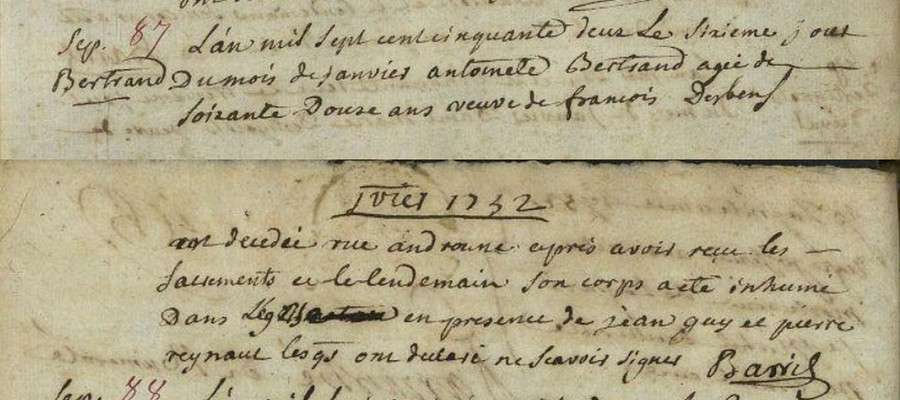 Sep. 87 L'an mil sept cent cinquante deux Le sixieme jour
Bertrand Du mois de janvier antoinete Bertrand agée de
soixante Douze ans veuve de francois Desbens
jvier 1752
est decedée rue androune apres avoir receu les
sacrements et le lendemain son corps a eté inhumé
Dans L'eglise en presence de jean guy et pierre
reynaut lesqs ont declaré ne scavoir signer Barril
Sep. 88